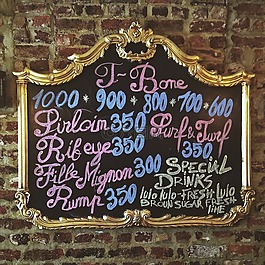 T-Bone
1000 • 900 • 800 • 700 • 600
Sirloin 350
Surf & Turf 350
Rib eye 350
Fille Mignon 300
Rump 350
SPECIAL
DRINKS
lulo lulo-FRESH lulo
BROUN SUGAR FRESH
lime